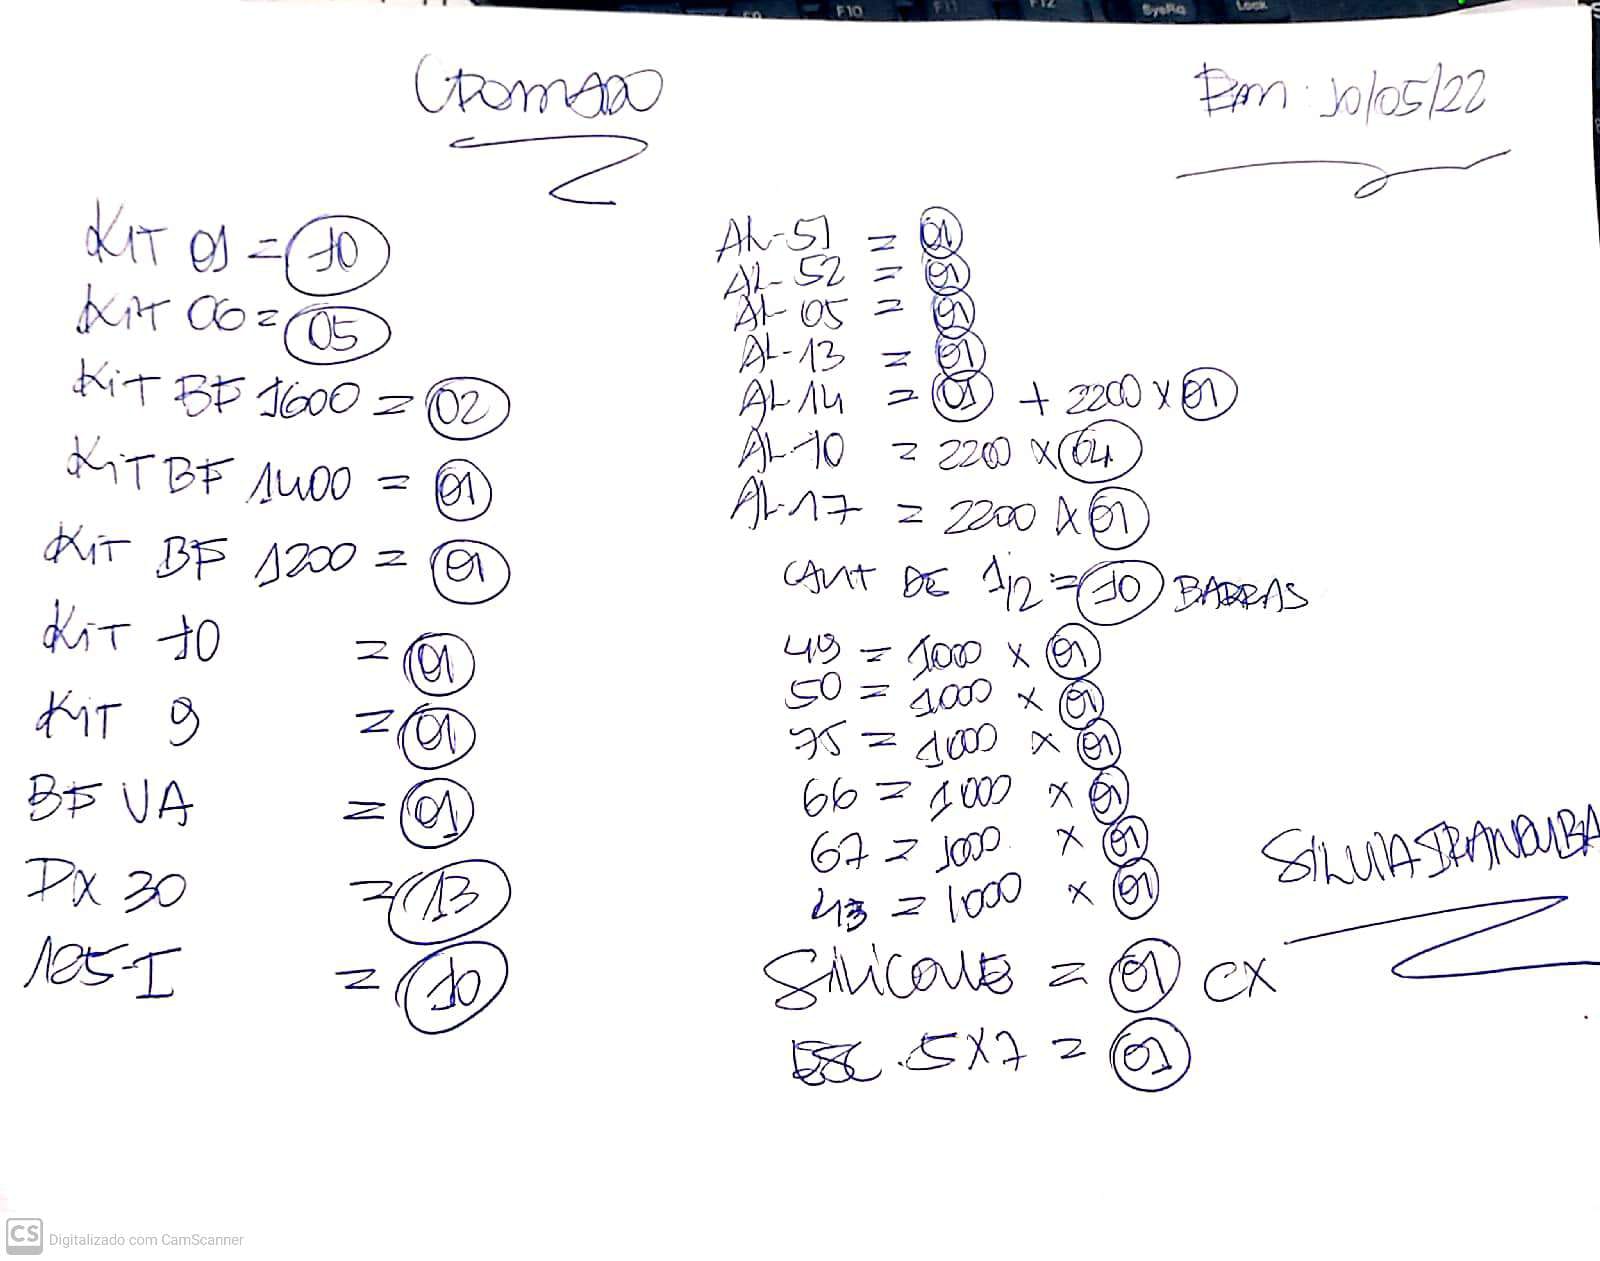 F10 F11 F12 SysRq Lock
CROMADO
Em: 10/05/22
KIT 01 = 10
KIT 06 = 05
KIT BF 1600 = 02
KIT BF 1400 = 01
KIT BF 1200 = 01
KIT 10 = 01
KIT 9 = 01
BF VA = 01
PX 30 = 13
185-I = 10
AL-51 = 01
AL-52 = 01
AL-05 = 01
AL-13 = 01
AL 14 = 01 + 2200 x 01
AL-10 = 2200 x 04
AL-17 = 2200 x 01
CANT DE 1/2 = 10 BARRAS
49 = 1000 x 01
50 = 1000 x 01
75 = 1000 x 01
66 = 1000 x 01
67 = 1000 x 01
43 = 1000 x 01
SILICONE = 01 CX
ESC. 5x7 = 01
SILVIA IRANDUBA
CS Digitalizado com CamScanner